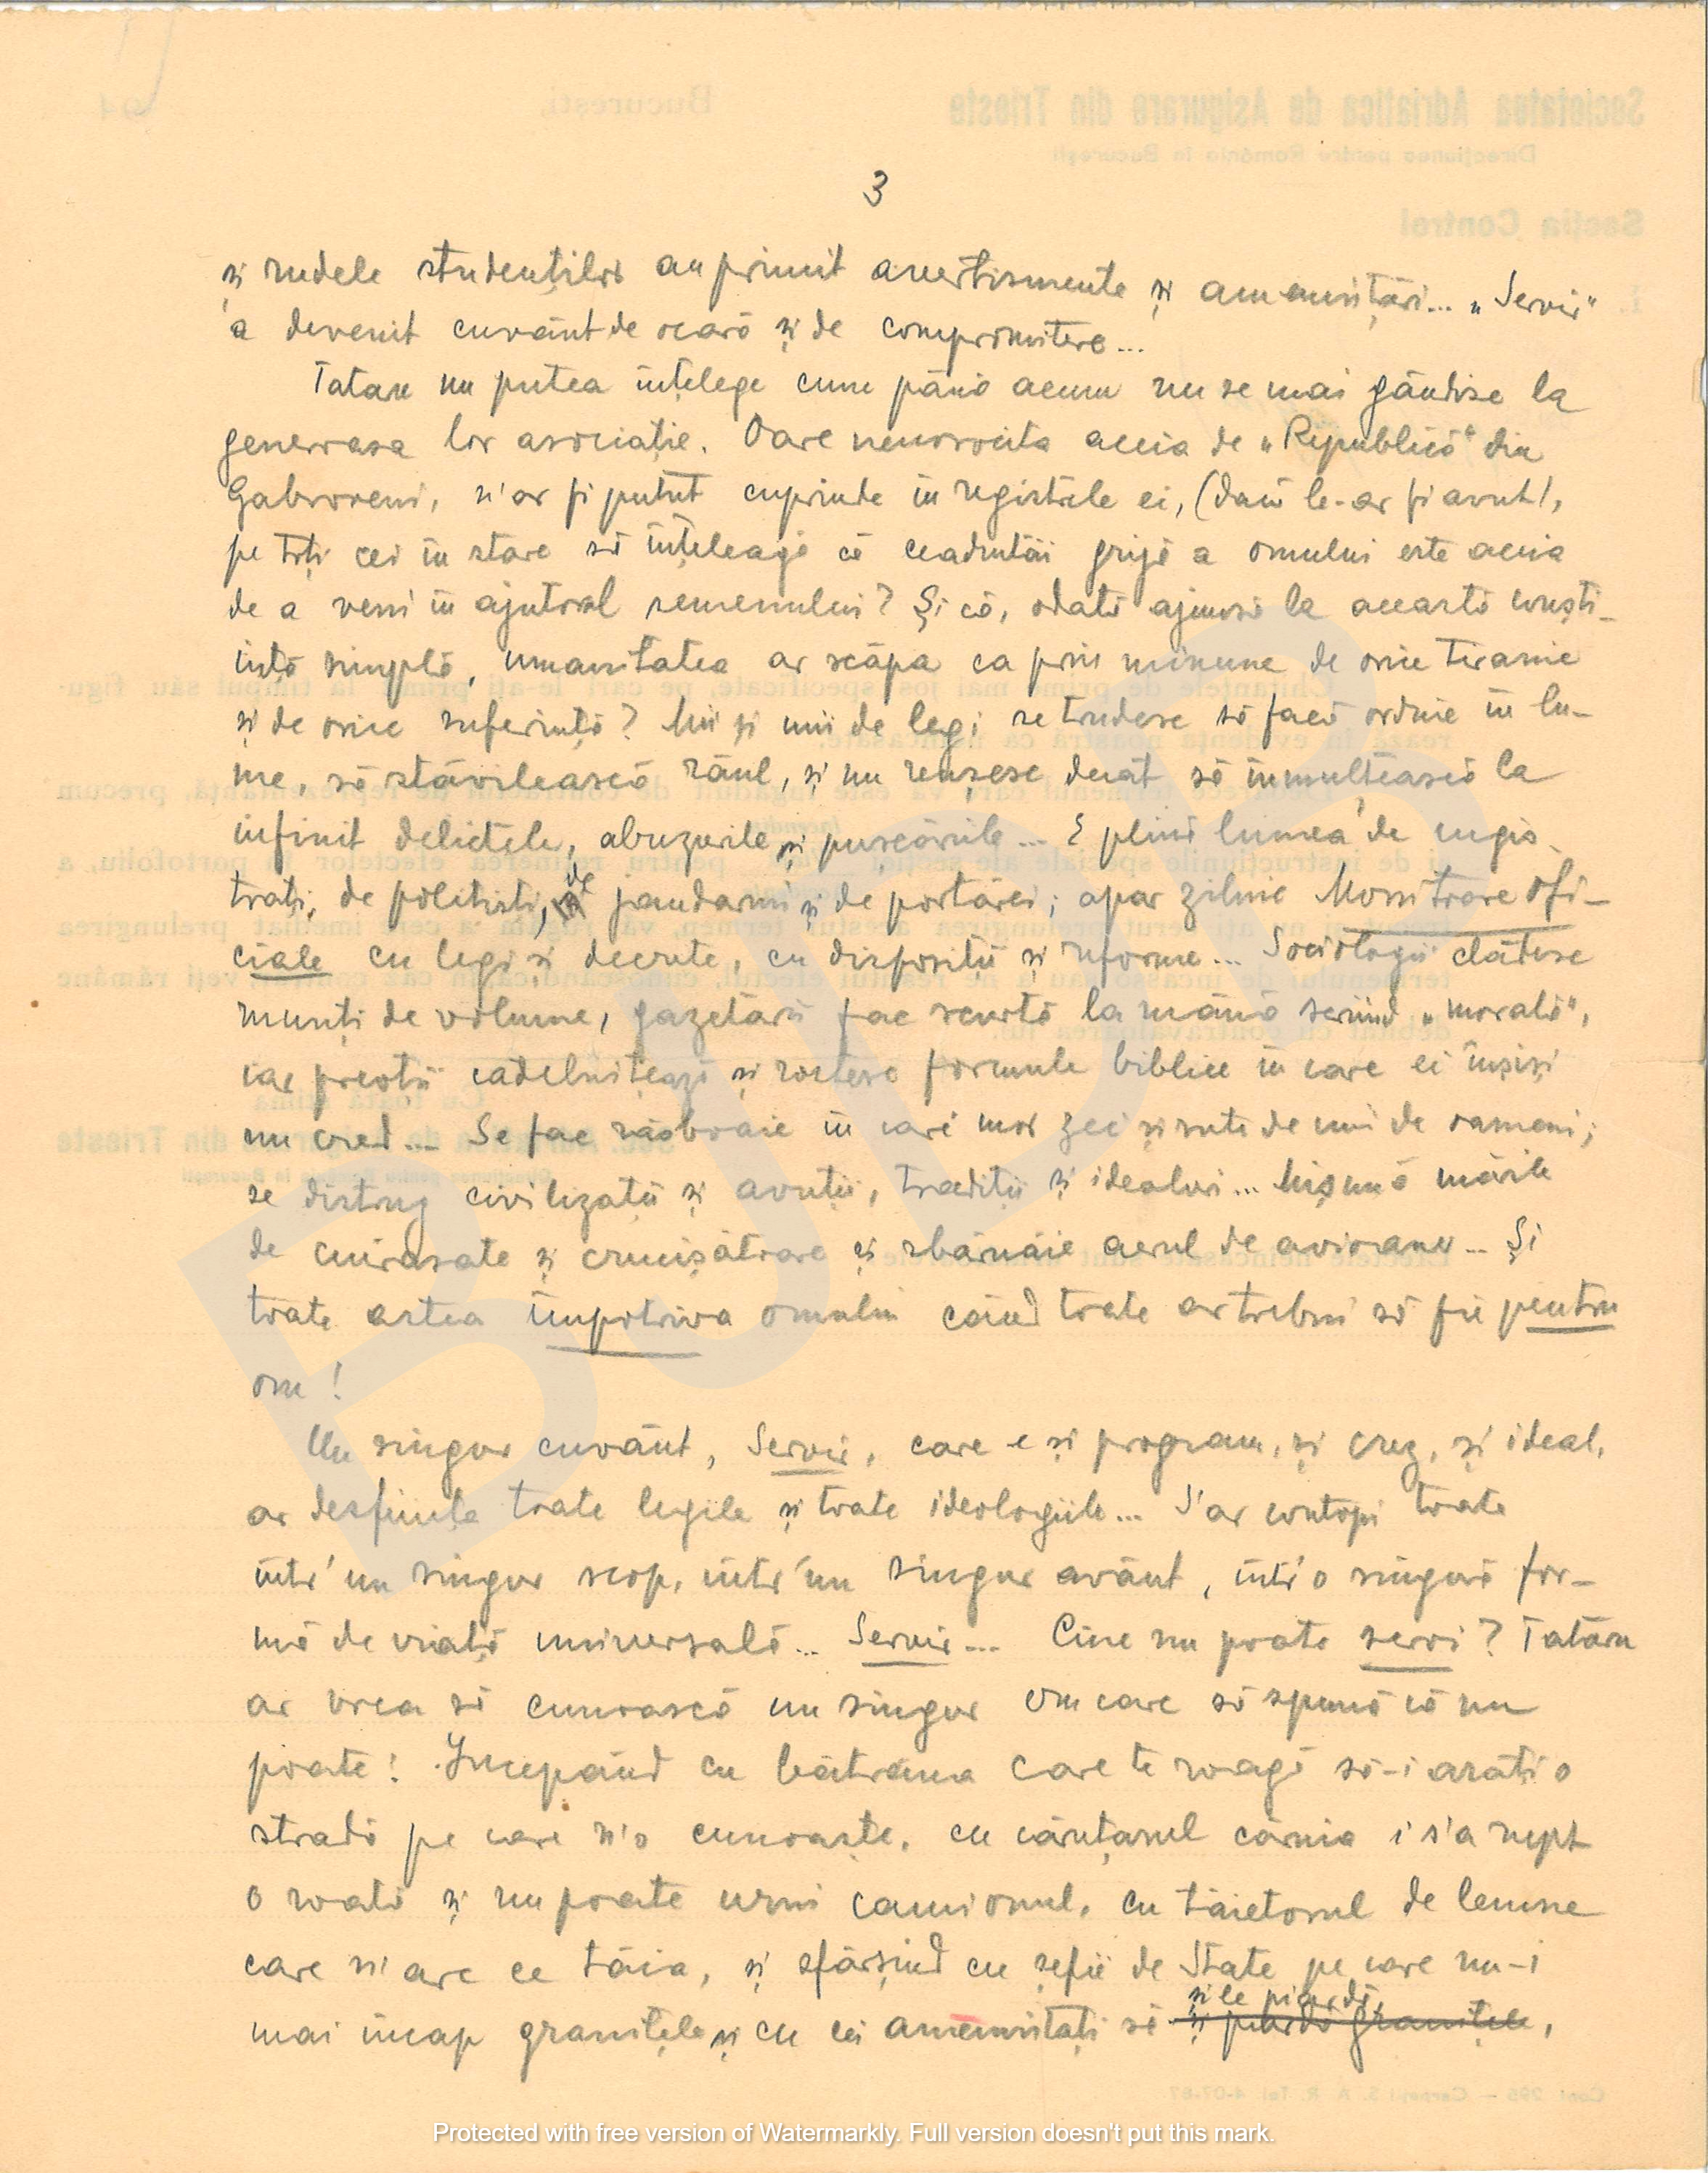 3
și rudele studenților au primit avertismente și amenințări... „Servir"
a devenit cuvânt de ocară și de compromitere...
Tataru nu putea înțelege cum până acum nu se mai gândise la
generoasa lor asociație. Oare nenorocita aceia de „Republică" din
Gabroveni, n'ar fi putut cuprinde în registrele ei, (dacă le-ar fi avut),
pe toți cei în stare să înțeleagă că ceadintâi grijă a omului este aceia
de a veni în ajutorul semenului? Și că, odată ajunsă la această conști-
ință simplă, umanitatea ar scăpa ca prin minune de orice tiranie
și de orice suferință? Mii și mii de legi se trudesc să facă ordine în lu-
me, să stăvilească răul, și nu reușesc decât să înmulțească la
infinit delictele, abuzurile și pușcăriile... E plină lumea de magis-
trați, de politiști, de jandarmi și de portărei; apar zilnic Monitoare ofi-
ciale cu legi și decrete, cu dispoziții și reforme... Sociologii clădesc
munți de volume, gazetării fac scurtă la mână scriind „morală",
iar preoții cădelnițează și rostesc formule biblice în care ei înșiși
nu cred... Se fac războaie în cari mor zeci și sute de mii de oameni;
se distrug civilizații și avuții, tradiții și idealuri... Mișună mările
de cuirasate și crucișătoare și sbârnâie aerul de avioane... Și
toate astea împotriva omului când toate ar trebui să fie pentru
om!
Un singur cuvânt, Servir, care e și program, și crez, și ideal,
ar desființa toate legile și toate ideologiile... S'ar contopi toate
într'un singur scop, într'un singur avânt, într'o singură for-
mă de viață universală... Servir... Cine nu poate servi? Tatăru
ar vrea să cunoască un singur om care să spună că nu
poate! Începând cu bătrâna care te roagă să-i arăți o
stradă pe care n'o cunoaște, cu căruțașul căruia i s'a rupt
o roată și nu poate urni camionul, cu tăietorul de lemne
care n'are ce tăia, și sfârșind cu șefii de State pe care nu-i
și le piardă,
mai încap granițele și cu cei amenințați să și piardă granițele,
Societatea Adriatica de Asigurare din Trieste
București,
Direcțiunea pentru România în București
Secția Control
Protected with free version of Watermarkly. Full version doesn't put this mark.